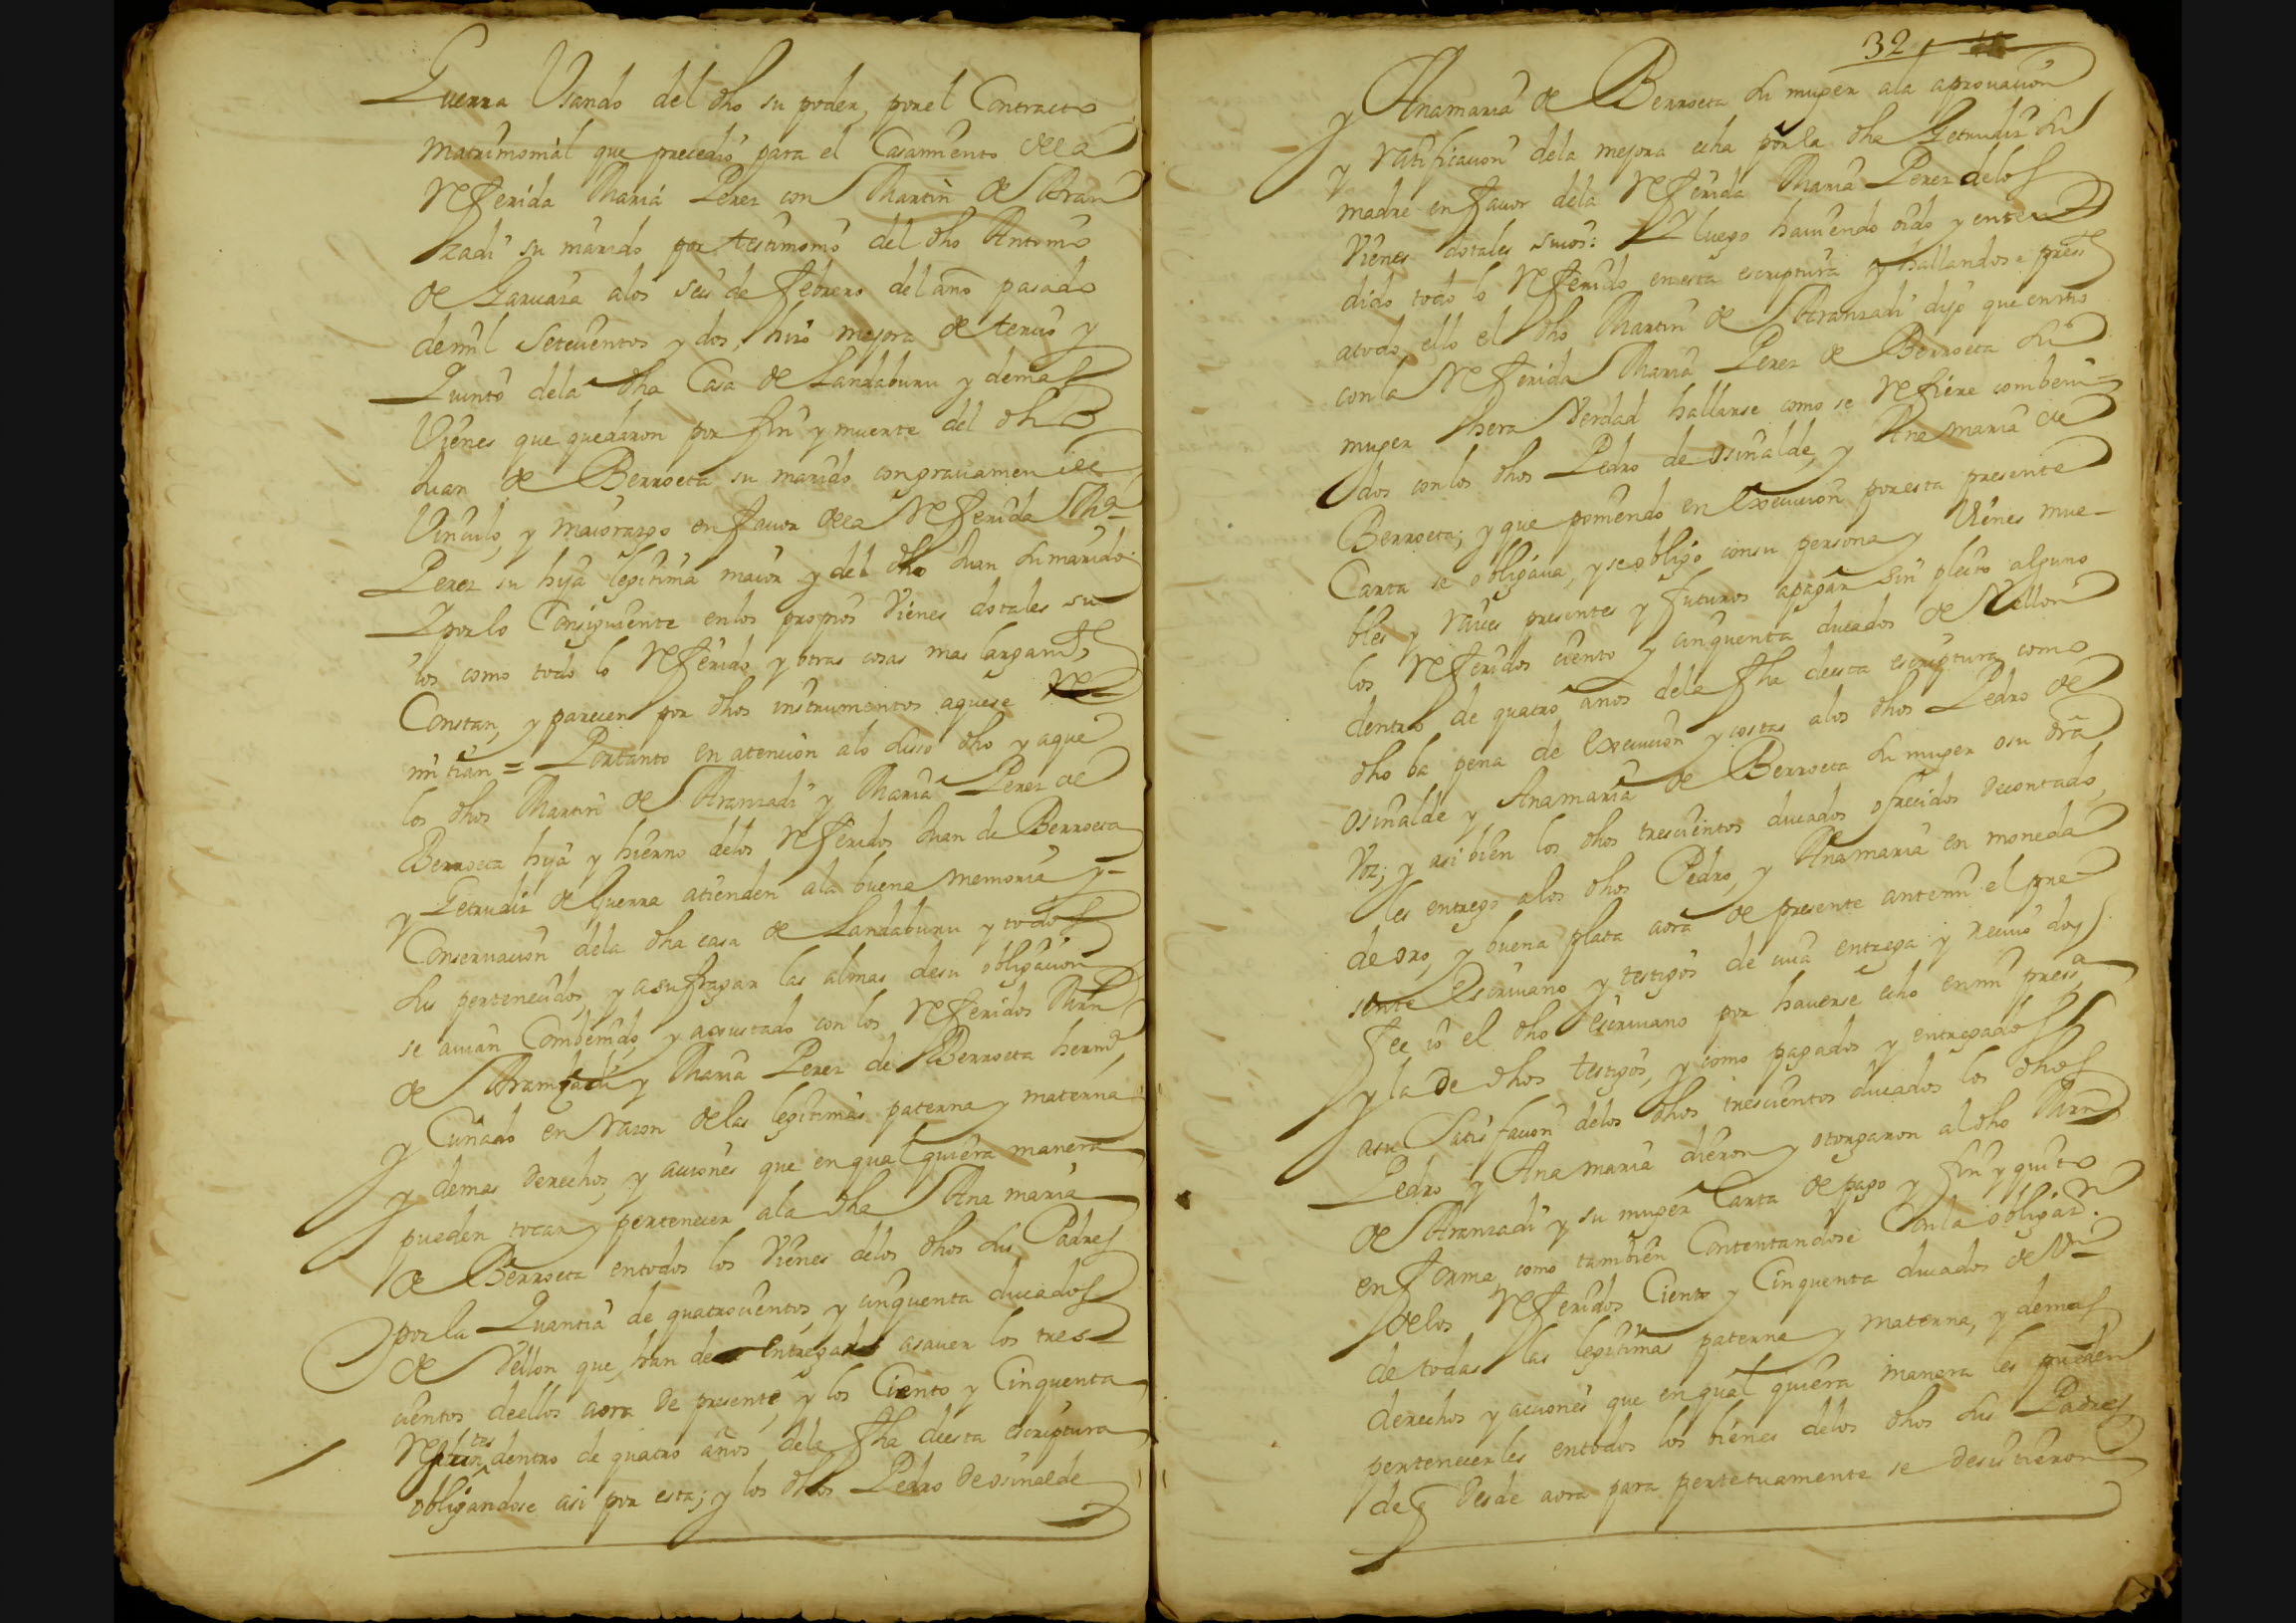 Guerra Usando del dho su poder, por el Contracto
matrimonial que precedio para el Casamiento de la
Referida Maria Perez con Martin de Aran
zadi su marido por testimonio del dho Antonio
de Garuara alos seis de febrero del año pasado
de mil setecientos y dos, hizo mejora de tercio y
Quinto dela dha Casa de Landaburu y demas
Vienes que quedaron por fin y muerte del dho
Juan de Berroeta su marido con gravamen de
Vinculo, y maiorazgo en favor de la Referida Mª
Perez su hija legitima maior y del dho Juan su marido
Y por lo Consiguiente en los propios Vienes dotales su
ios como todo lo Referido y otras cosas mas largamte
Constan, y parecen por dhos instrumentos aque se Re
mitian = Portanto en atencion alo suso dho y aque
los dhos Martin de Aranzadi y Maria Perez de
Berroeta hija y hierno delos Referidos Juan de Berroeta
y Getrudis de Guerra atienden ala buena memoria y
Conservacion dela dha casa de Landaburu y todos
sus pertenecidos, y asufragar las almas desu obligacion
se avian Combenido, y ajustado con los Referidos Mrn
de Aranzadi y Maria Perez de Berroeta hermª
y Cuñado en Razon de las legitimas paterna y materna
y demas derechos, y acciones que en qual quiera manera
pueden tocar y pertenecer ala dha Ana maria
de Berroeta entodos los Vienes delos dhos sus Padres
por la Quantia de quatrocientos y cinquenta ducados
de Vellon que han de entregados asaver los tres
cientos deellos aora de presente, y los Ciento y Cinquenta
Restantes dentro de quatro años dela fha deesta escriptura
obligandose asi por esta; y los dhos Pedro de osinalde
32
y Anamaria de Berroeta su muger ala aprovacion
y ratificacion dela mejora echa por la dha Getrudis su
madre en favor dela Referida Maria Perez delos
Vienes dotales suios: Y luego haviendo oido y enten
dido todo lo Referido en esta escriptura y hallandose presste
atodo ello el dho Martin de Aranzadi dijo que en rno
con la Referida Maria Perez de Berroeta su
muger hera Verdad hallarse como se refiere combeni=
dos con los dhos Pedro de osinalde, y Ana maria de
Berroeta; y que poniendo en execucion por esta presente
Carta se obligava, y se obligo consu persona y Vienes mue-
bles y raices presentes y futuros apagar sin pleito alguno
los Referidos ciento y cinquenta ducados de Vellon
dentro de quatro años dela fha deesta escriptura como
dho ba pena de execucion y costas alos dhos Pedro de
osinalde y Anamaria de Berroeta su muger osu dra
voz; y asi bien los dhos trescientos ducados ofrecidos de contado,
les entrego alos dhos Pedro, y Anamaria en moneda
de oro, y buena plata aora de presente antemi el pre
sente Escrivano y testigos de cuia entrega y recivo doy
fee io el dho escrivano por haverse echo en mi presª
y la de dhos testigos, y como pagados y entregados
asu satisfacion delos dhos trescientos ducados los dhos
Pedro y Ana maria dieron y otorgaron al dho Mrn
de Aranzadi y su muger Carta de pago y fin y quito
en forma, como tambien Contentandose Con la obligacn
de los Referidos Ciento y Cinquenta ducados de Vn
de todas las legitimas paterna y materna, y demas
derechos y acciones que en qual quiera manera les pueden
pertenecerles entodos los bienes delos dhos sus Padres
de q desde aora para perpetuamente se desistieron